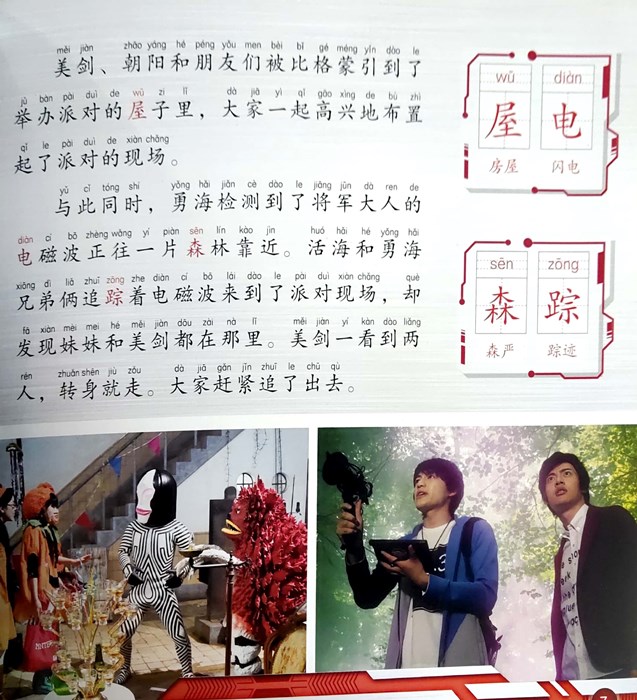 měi jiàn zhāo yáng hé péng yǒu men bèi bǐ gé méng yǐn dào le
美剑、朝阳和朋友们被比格蒙引到了
jǔ bàn pài duì de wū zi lǐ dà jiā yì qǐ gāo xìng de bù zhì
举办派对的屋子里，大家一起高兴地布置
qǐ le pài duì de xiàn chǎng
起了派对的现场。
yǔ cǐ tóng shí yǒng hǎi jiǎn cè dào le jiāng jūn dà ren de
与此同时，勇海检测到了将军大人的
diàn cí bō zhèng wǎng yí piàn sēn lín kào jìn huó hǎi hé yǒng hǎi
电磁波正往一片森林靠近。活海和勇海
xiōng dì liǎ zhuī zōng zhe diàn cí bō lái dào le pài duì xiàn chǎng què
兄弟俩追踪着电磁波来到了派对现场，却
fā xiàn mèi mei hé měi jiàn dōu zài nà lǐ měi jiàn yí kàn dào liǎng
发现妹妹和美剑都在那里。美剑一看到两
rén zhuǎn shēn jiù zǒu dà jiā gǎn jǐn zhuī le chū qù
人，转身就走。大家赶紧追了出去。
wū diàn
屋 电
房屋 闪电
sēn zōng
森 踪
森严 踪迹
7